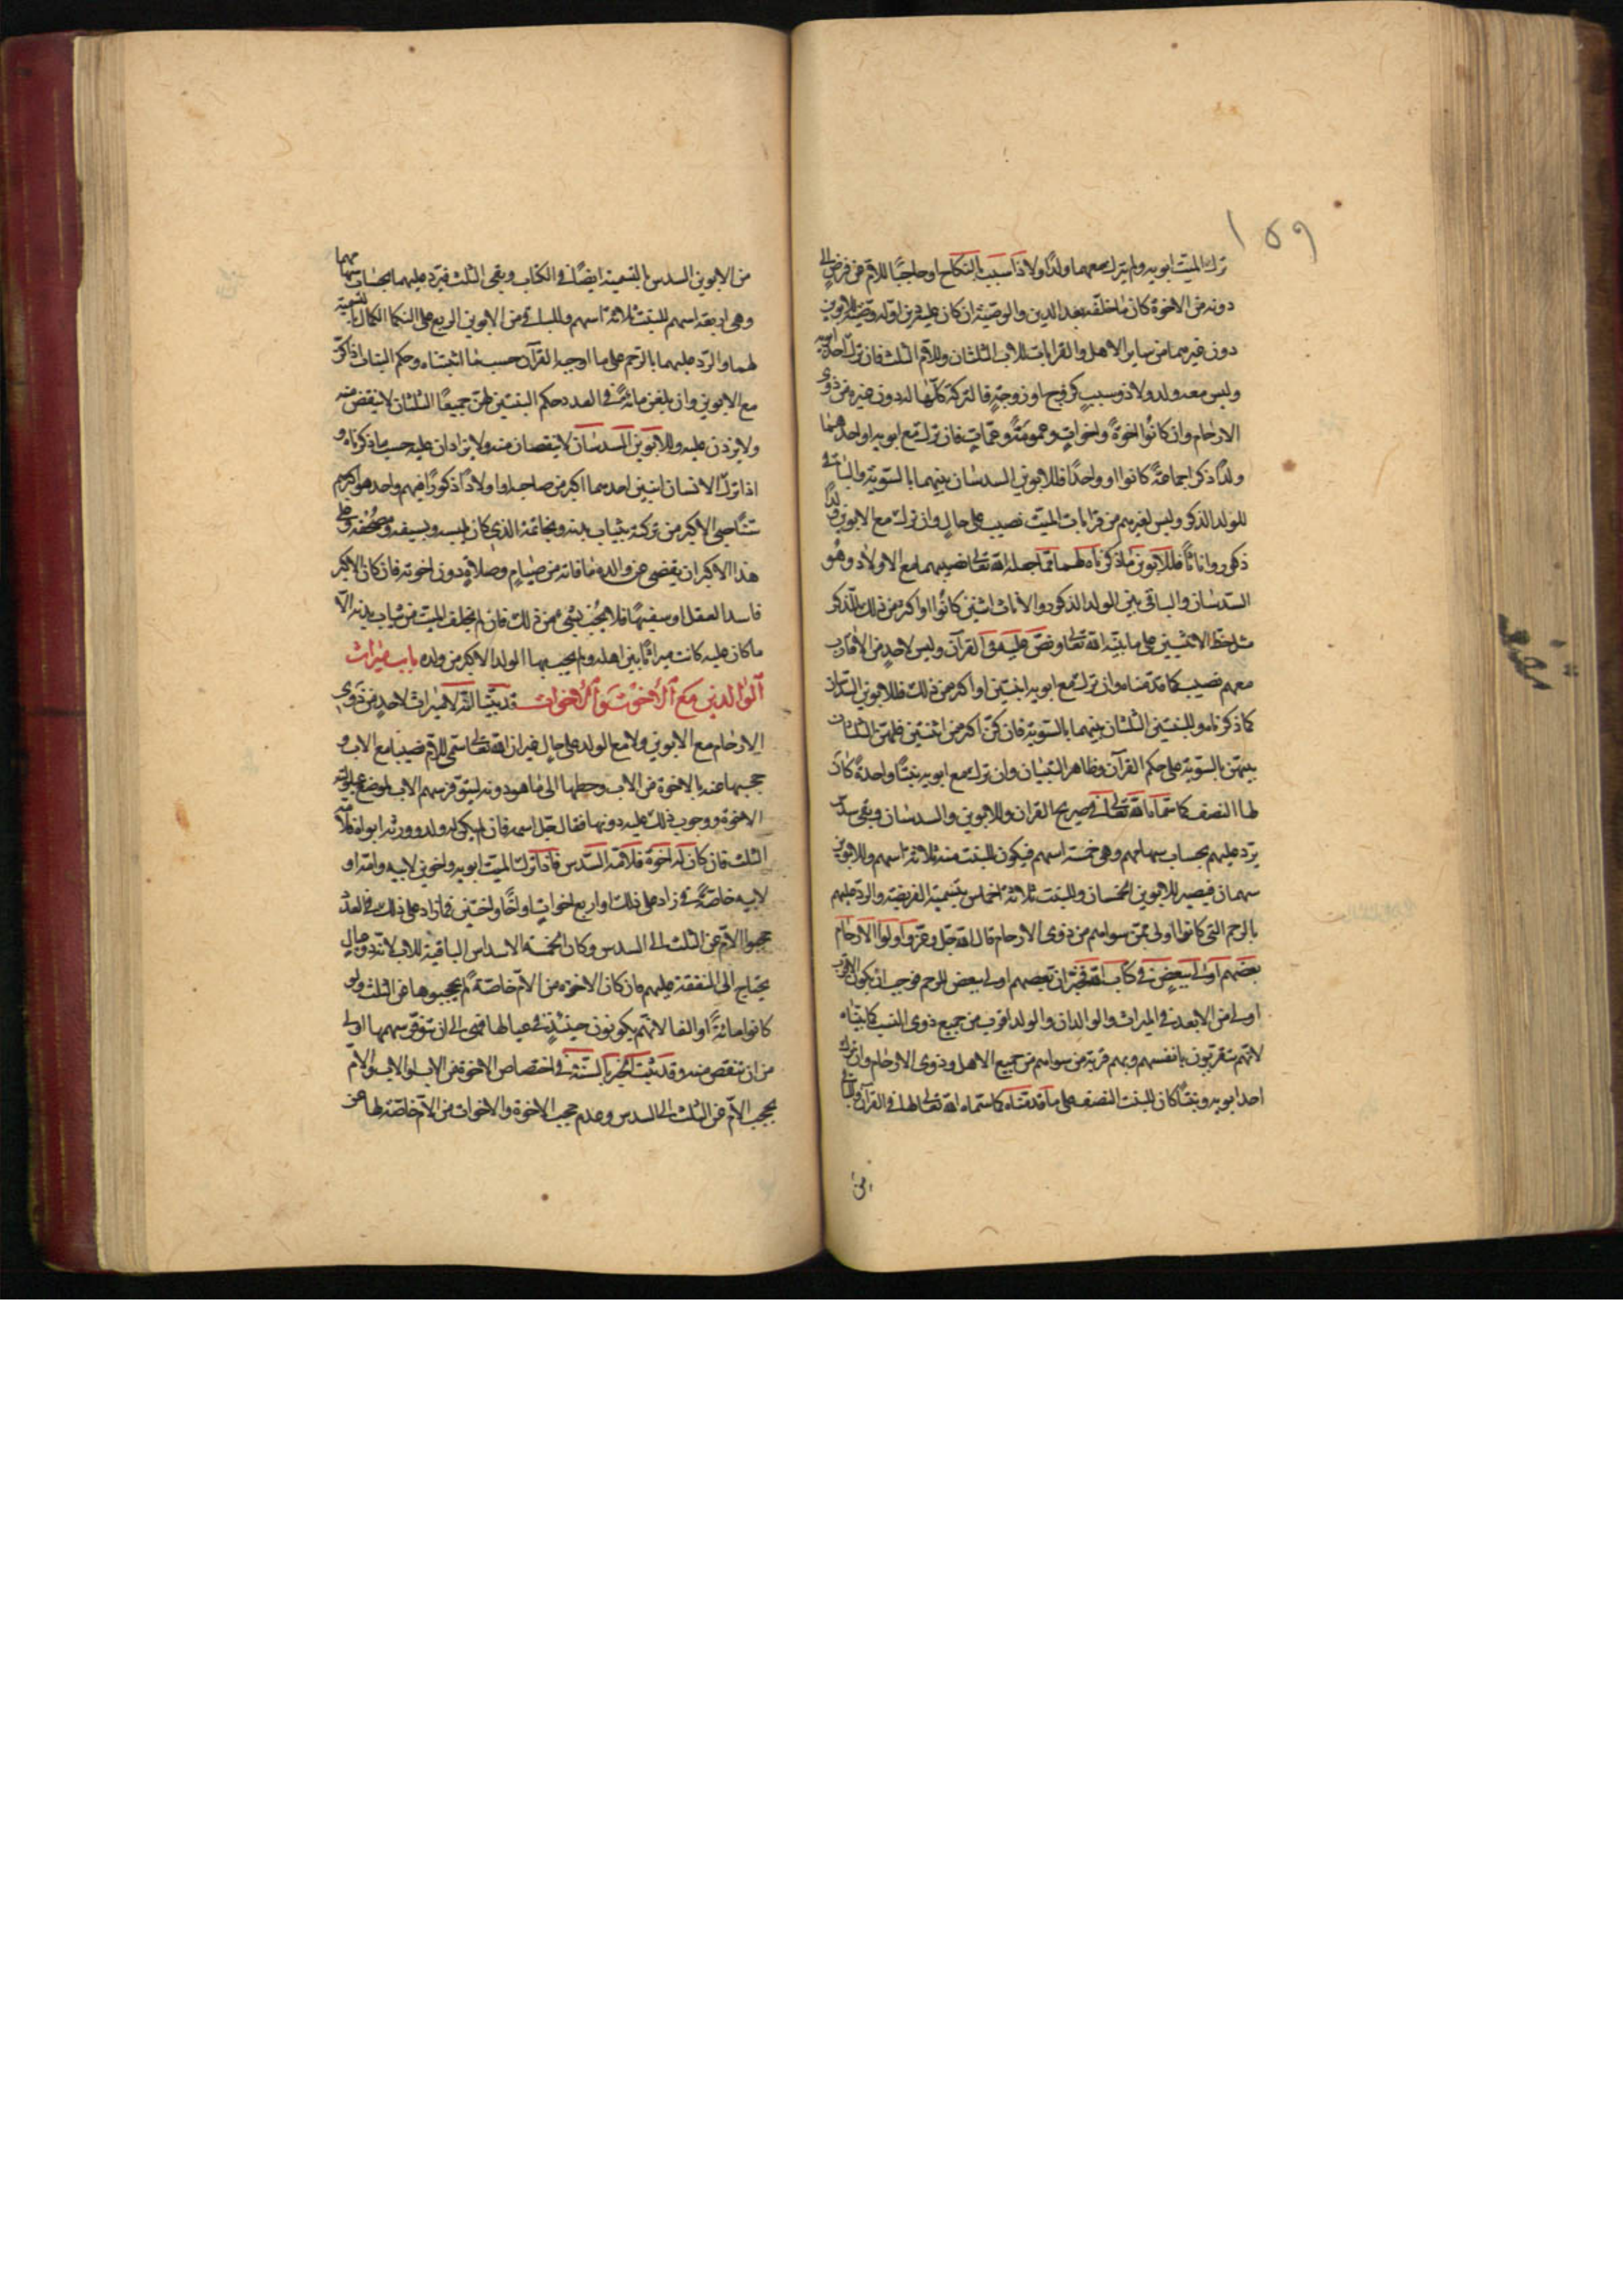 ١٥٩
ترك الميت ابويه ولم يترك معهما ولدًا ولا ذا سبب بالنكاح او حاجبًا للام عن فرض الى
دونه من الاخوة كان ما خلفه بعد الدين والوصية ان كان عليه دين اوله وصية للابوين
دون غيرهما من ساير الاهل والقرابات للاب الثلثان وللام الثلث فان ترك احد ابويه
وليس معه ولد ولا ذو سبب كزوج او زوجة فالتركة كلّها له دون غيره من ذوى
الارحام وان كانُوا اخوةً واخواتٍ وعمومَةً وعمّاتٍ فان ترك مع ابويه او احدهما
ولدًا ذكرا جماعةً كانوا او واحدًا فللابوين السدسان بينهما بالسّوية والباقى
للولد الذكر وليس لغيرهم من قرابات الميّت نصيب على حالٍ وان ترك مع الابوين ولدًا
ذكورًا واناثًا فللابوين ما ذكرناه لهما ممّا جعله الله تعالى نصيبهما مع الاولاد وهُو
السّدسَان والباقى بين الولد الذكور والاناث اثنين كانُوا او اكثر من ذلك للذّكر
مثل حظ الانثيين على ما بيّنه الله تعالى ونصّ عليه فى القرآن وليس لاحدٍ من الاقارب
معهم نصيب كما قدّمناه وان ترك مع ابويه ابنتين او اكثر من ذلك فللابوين السّدسان
كما ذكرناه وللبنتين الثلثان بينهما بالسّوية فان كنّ اكثر من اثنتين فلهنّ الثلثان
بينهنّ بالسّوية على حكم القرآن وظاهر التبيان وان ترك مع ابويه بنتًا واحدةً كان
لها النصف كما سمّاه الله تعالى فى صريح القران وللابوين السدسان وبقى سدس
يردّ عليهم بحساب سهامهم وهى خمسة اسهم فيكون للبنت منه ثلاثة اسهم وللابوين
سهمان فيصير للابوين الخمسان وللبنت ثلاثة اخماس بتسمية الفريضة والردّ عليهم
بالرحم التى كانوا اولى ممّن سواهم من ذوى الارحام قال الله جلّ وعزّ واولوا الارحام
بعضهم اولى ببعض فى كتاب الله فخبّر ان بعضهم اولى ببعض للرحم فوجب ان يكون الاقرب
اولى من الابعد فى الميراث والوالدان والولد اقرب من جميع ذوى النسب كما بيّناه
لانّهم يتقربون بانفسهم وبهم قربة من سواهم من جميع الاهل وذوى الارحام وان ترك
احد ابويه وبنتًا كان للبنت النصف على ما قدمناه كما سمّاه الله تعالى لها فى القرآن وللباقى
من
من الابوين السدس بالتسمية ايضًا فى الكتاب وبقى الثلث فيردّ عليهما بحساب سهامهما
وهى اربعة اسهم للبنت ثلاثة اسهم وللباقى من الابوين الربع على النكمال بالتسمية
لهما والردّ عليهما بالرّحم على ما اوجبه القرآن حسبما اثبتناه وحكم البنات اذا كنّ
مع الابوين وان بلغن مائةً فى العدد حكم البنتين لهنّ جميعًا الثلثان لا ينقصن منه
ولا يزدن عليه وللابوين السدسان لا ينقصان منه ولا يزادان عليه حسب ما ذكرناه و
اذا ترك الانسان ابنين احدهما اكبر من صاحبه او اولادًا ذكورًا فيهم واحد هو اكبرهم
سنًّا حبى الاكبر من تركته بثياب بدنه وبخاتمه الذى كان يلبسه وبسيفه ومصحفه وعلى
هذا الاكبر ان يقضى عن والده ما فاته من صيامٍ وصلاةٍ دون اخوته فان كان الاكبر
فاسد العقل او سفيهًا فلا يُحْبَ بشىء من ذلك فان لم يخلف الميت من ثياب بدنه الا
ما كان عليه كانت ميراثًا بين اهله ولم يحب بها الولد الاكبر من ولده باب ميراث
الوالدين مع الاخوة والاخوات قد بيّنّا انّه لا ميراث لاحدٍ من ذوى
الارحام مع الابوين ولا مع الولد على حالٍ غير ان الله تعالى سمّى للامّ نصيبًا مع الاب و
حجبها عنه بالاخوة من الاب وحطها الى ما هو دونه ليتوفّر سهم الاب لموضع عيلولته
الاخوة ووجوب ذلك عليه دونها فقال جل اسمه فان لم يكن له ولد وورثه ابواه فلامّه
الثلث فان كان له اخوة فلامّه السّدس فاذا ترك الميت ابويه واخوين لابيه وامّه او
لابيه خاصّةً فما زاد على ذلك او اربع اخواتٍ او اخًا واختين فما زاد على ذلك فى العدد
حجبوا الامّ عن الثلث الى السدس وكان الخمسة الاسداس الباقية للاب لانّه ذو عيالٍ
يحتاج الى النفقة عليهم فان كان الاخوة من الامّ خاصّةً لم يحجبوها عن الثلث ولو
كانوا مائةً او الفا لانّهم يكونون حينئذٍ فى عيالها فهى الى ان توفّر سهمها اولى
من ان تنقص منه وقد ثبت الخبر بالسّنّة فى اختصاص الاخوة من الاب او الاب والامّ
بحجب الامّ عن الثلث الى السدس وعدم حجب الاخوة والاخوات من الامّ خاصّة لها عن